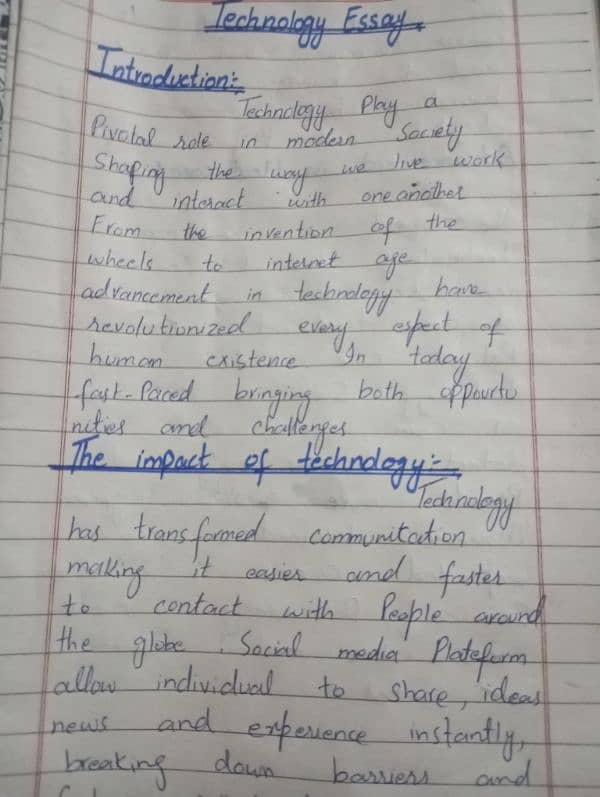 Technology Essay.
Introduction:-
Technology Play a
Pivotal role in modern Society
Shaping the way we live work
and interact with one another
From the invention of the
wheels to internet age
advancement in technology have
revolutionized every espect of
human existence In today
fast-Paced bringing both oppourtu
nities and challenges
The impact of technology:-
Technology
has transformed communitcation
making it easier and faster
to contact with People around
the globe. Social media Plateform
allow individual to share, ideas
news and experience instantly,
breaking down barriers and